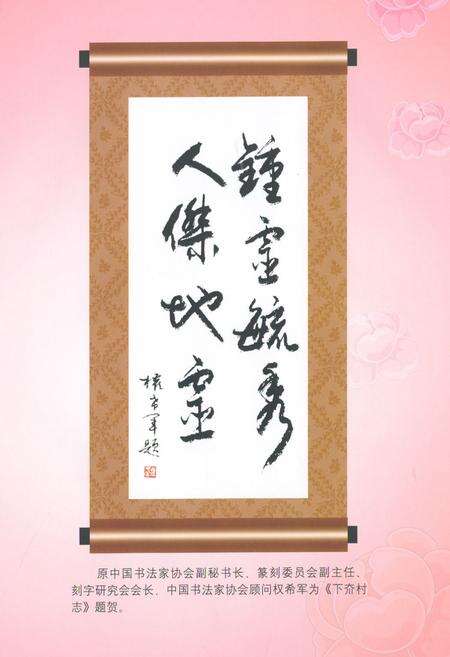 鍾靈毓秀
人傑地靈
權希軍題
原中国书法家协会副秘书长、篆刻委员会副主任、
刻字研究会会长、中国书法家协会顾问权希军为《下夼村
志》题贺。